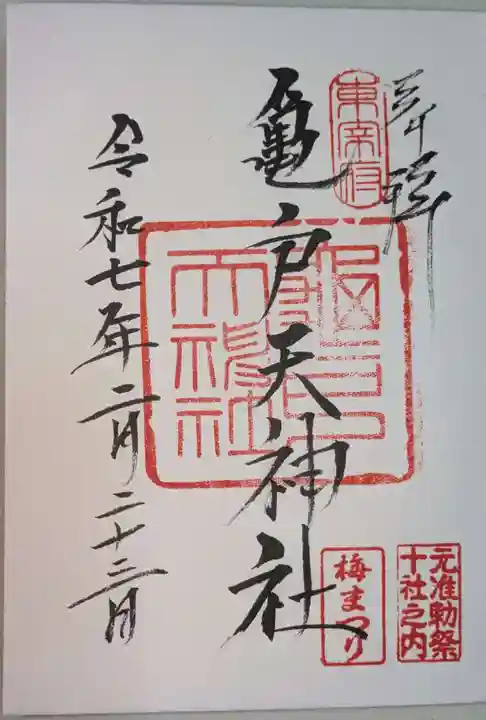 奉拝
東宰府
亀戸天神社
亀戸天神社
元准勅祭
十社之内
梅まつり
令和七年二月二十三日